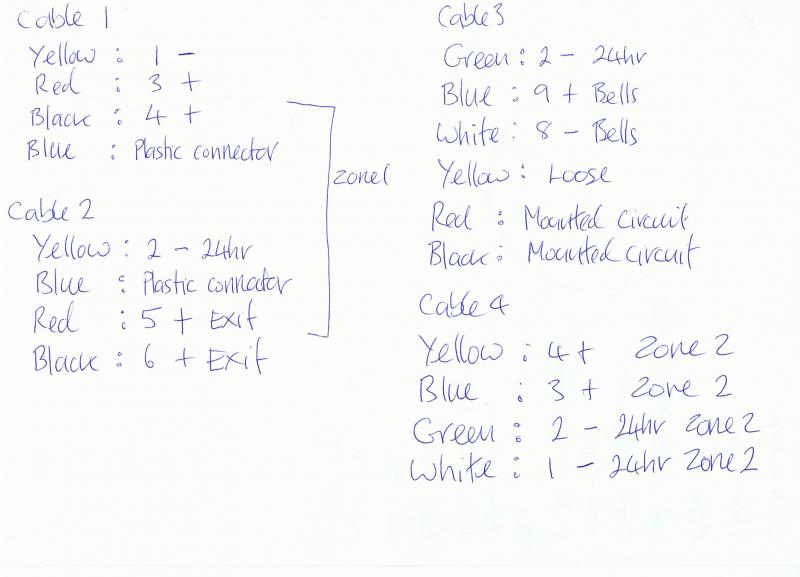 Cable 1
Yellow : 1 -
Red : 3 +
Black : 4 +
Blue : Plastic connector
Zone1
Cable 2
Yellow : 2 - 24hr
Blue : Plastic connector
Red : 5 + Exit
Black : 6 + Exit
Cable 3
Green : 2 - 24hr
Blue : 9 + Bells
White : 8 - Bells
Yellow : Loose
Red : Mounted Circuit
Black : Mounted Circuit
Cable 4
Yellow : 4 + Zone 2
Blue : 3 + Zone 2
Green : 2 - 24hr Zone 2
White : 1 - 24hr Zone 2